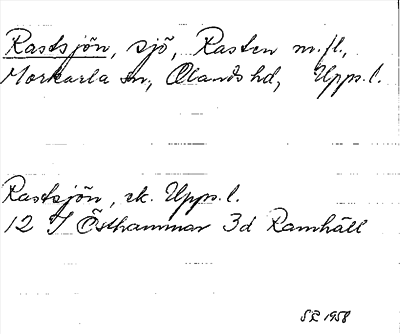 Rastsjön, sjö, Rasten m.fl.,
Morkarla sn, Olands hd, Upps. l.
Rastsjön, ek. Upps. l.
12 I Östhammar 3d Ramhäll
SE 1958